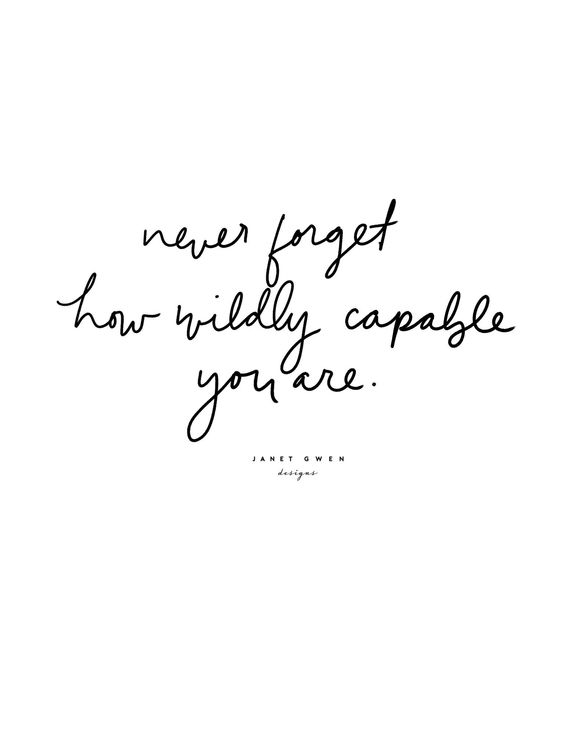 never forget
how wildly capable
you are.
JANET GWEN
designs